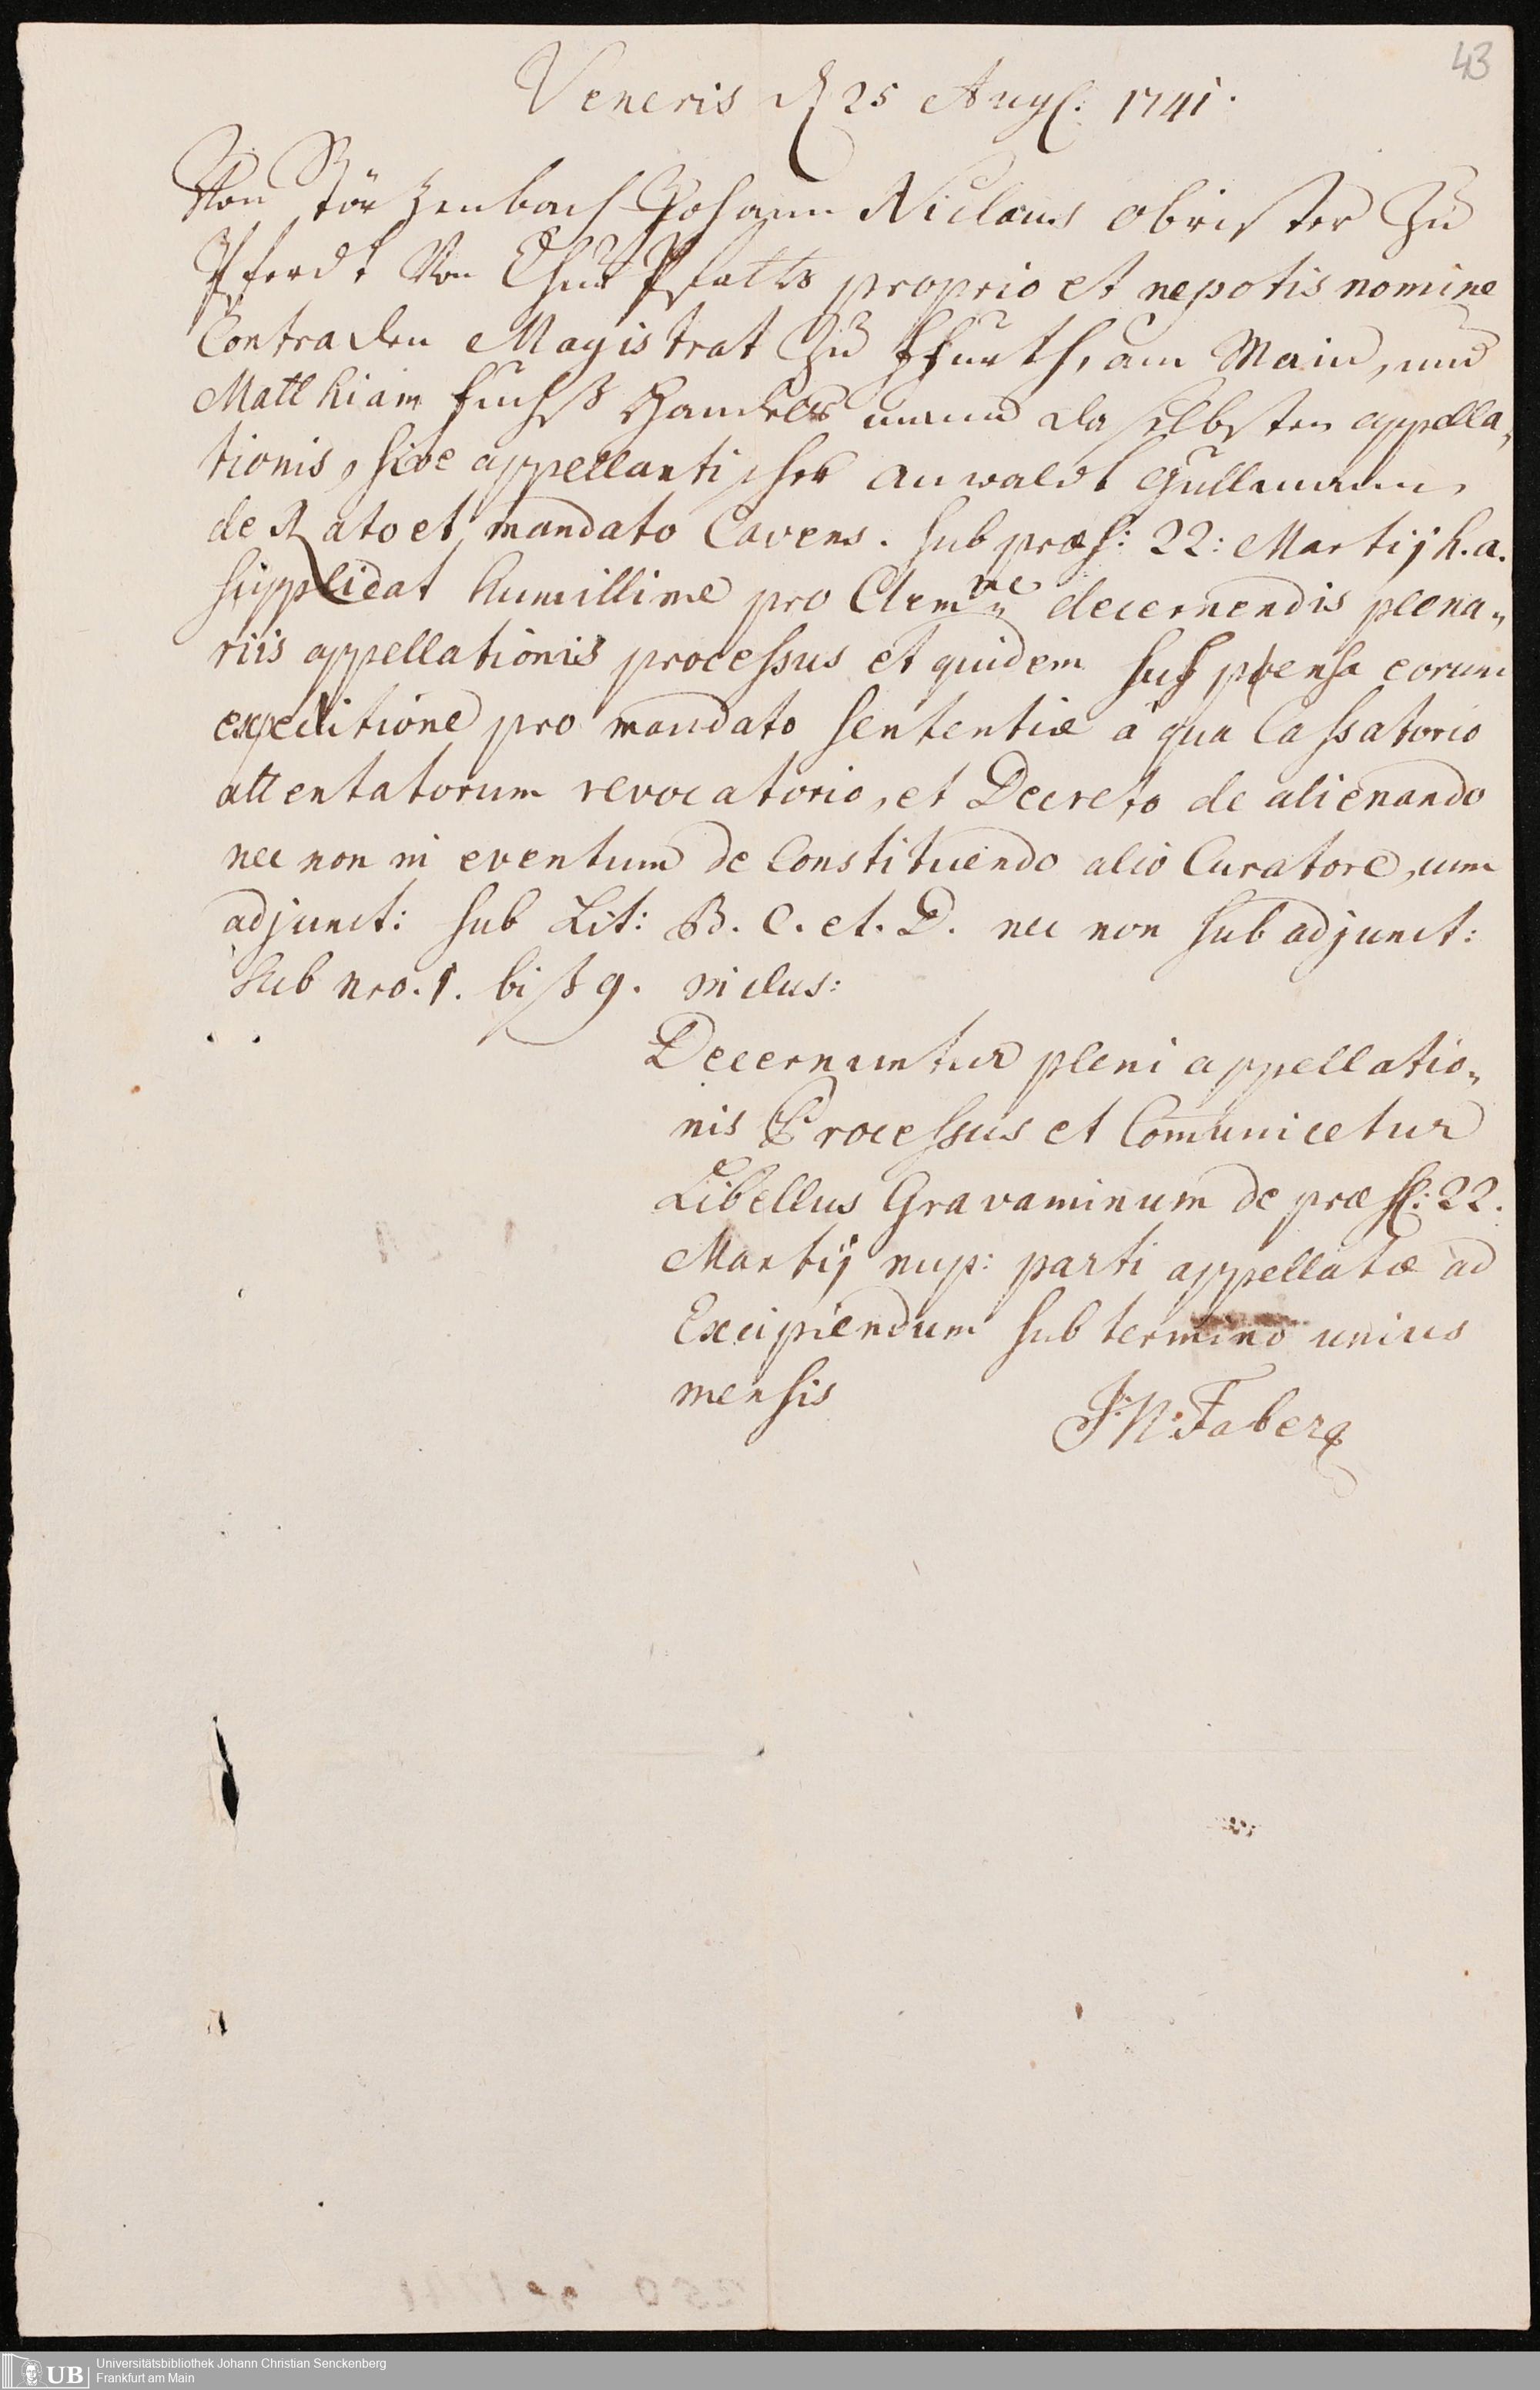 43
Veneris d 25 Aug: 1741.
Von Störzenbach Johann Niclaus obrister Zu
Pferdt Von Chur Pfaltz proprio et nepotis nomine
Contra den Magistrat Zu Ffurth, am Main, und
Matthiam Fuchß Handelsmann daselbsten appella„
tionis, sive appellantischer anwaldt Gullmann,
de Rato et mandato Cavens. sub præs: 22: Martij h.a.
supplicat humillime pro Clemme decernendis plena„
riis appellationis processus et quidem suspensa eorum
expeditione pro mandato sententiæ à qua Cassatorio
attentatorum revocatorio, et Decreto de alienando
nec non in eventum de Constituendo alio Curatore, cum
adjunct: sub Lit: B. C. et. D. nec non sub adjunct:
sub nro. 1. biß 9. inclus:
Decernuntur pleni appellatio„
nis Processus et Comunicetur
Libellus Gravaminum de præs: 22.
Martij nup: parti appellatæ ad
Excipiendum sub termino unius
mensis
J:N:Faber
UB
Universitätsbibliothek Johann Christian Senckenberg
Frankfurt am Main